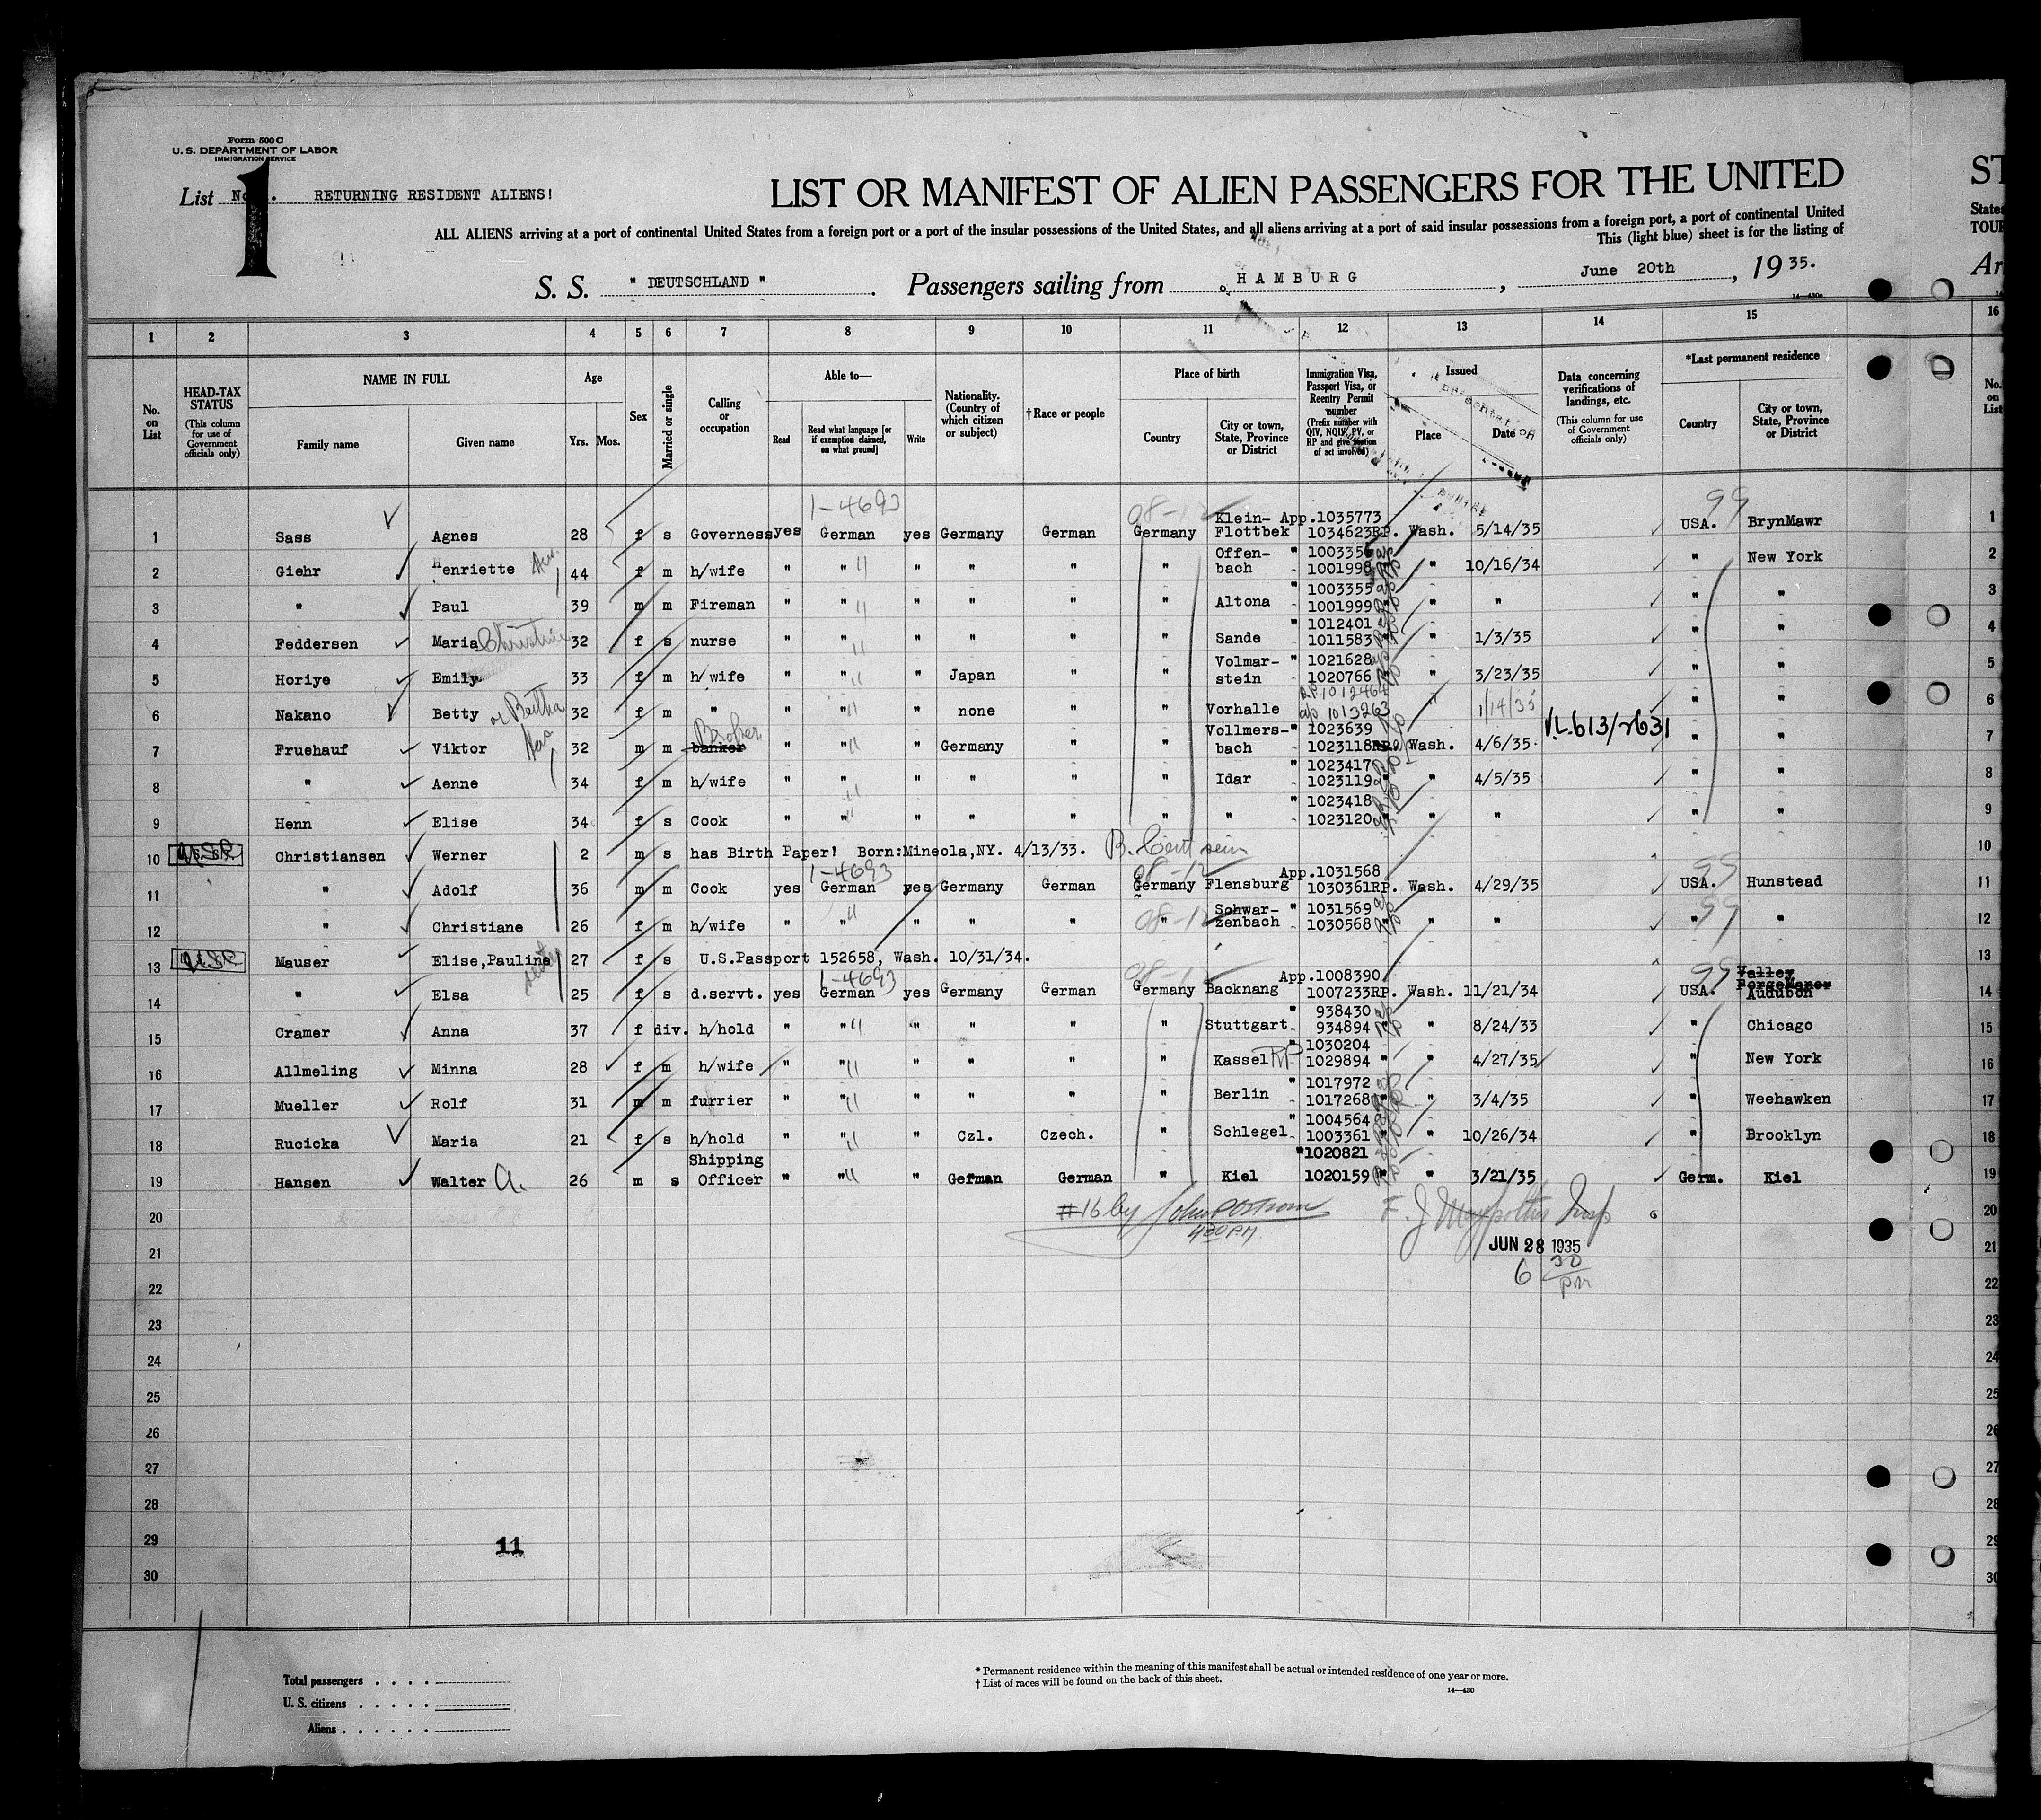 Form 500 C
U. S. DEPARTMENT OF LABOR
IMMIGRATION SERVICE
List No. 1. RETURNING RESIDENT ALIENS!
LIST OR MANIFEST OF ALIEN PASSENGERS FOR THE UNITED
ST
ALL ALIENS arriving at a port of continental United States from a foreign port or a port of the insular possessions of the United States, and all aliens arriving at a port of said insular possessions from a foreign port, a port of continental United
States
This (light blue) sheet is for the listing of
TOUR
S. S. " DEUTSCHLAND " . Passengers sailing from HAMBURG , June 20th , 19 35.
Ar
1 2 3 4 5 6 7 8 9 10 11 12 13 14 15 16
No. on List
HEAD-TAX STATUS (This column for use of Government officials only)
NAME IN FULL
Family name Given name
Age
Yrs. Mos.
Sex
Married or single
Calling or occupation
Able to—
Read Read what language [or if exemption claimed, on what ground] Write
Nationality. (Country of which citizen or subject)
† Race or people
Place of birth
Country City or town, State, Province or District
Immigration Visa, Passport Visa, or Reentry Permit number (Prefix number with QIV, NQIV, PV, or RP and give section of act involved)
Issued
Place Date
Data concerning verifications of landings, etc. (This column for use of Government officials only)
*Last permanent residence
Country City or town, State, Province or District
No. on List
1-4693 99
1 Sass Agnes 28 f s Governess yes German yes Germany German Germany Klein-Flottbek App.1035773 1034623RP. Wash. 5/14/35 USA. BrynMawr 1
2 Giehr Henriette 44 f m h/wife " " " " " " Offen-bach " 1003356 1001998 " 10/16/34 " New York 2
3 " Paul 39 m m Fireman " " " " " " Altona " 1003355 1001999 " " " " 3
4 Feddersen Maria Christine 32 f s nurse " " " " " " Sande " 1012401 1011583 " 1/3/35 " " 4
5 Horiye Emily 33 f m h/wife " " " Japan " " Volmar-stein " 1021628 1020766 " 3/23/35 " " 5
6 Nakano Betty or Bertha 32 f m " " " " none " " Vorhalle RP 1012464 ap 1013263 " 1/14/35 " " 6
7 Fruehauf Viktor 32 m m banker Broker " " " Germany " " Vollmers-bach " 1023639 1023118RP. Wash. 4/6/35. V.L.613/2631 " " 7
8 " Aenne 34 f m h/wife " " " " " " Idar " 1023417 1023119 " 4/5/35 " " 8
9 Henn Elise 34 f s Cook " " " " " " " " 1023418 1023120 " " " " 9
10 Christiansen Werner 2 m s has Birth Paper! Born:Mineola,NY. 4/13/33. B. Cert seen 10
1-4693 99
11 " Adolf 36 m m Cook yes German yes Germany German Germany Flensburg App.1031568 1030361RP. Wash. 4/29/35 USA. Hunstead 11
12 " Christiane 26 f m h/wife " " " " " " Schwar-zenbach " 1031569 1030568 " " " " 12
13 Mauser Elise,Pauline 27 f s U.S.Passport 152658, Wash. 10/31/34. 13
1-4693 99
14 " Elsa 25 f s d.servt. yes German yes Germany German Germany Backnang App.1008390 1007233RP. Wash. 11/21/34 USA. Valley ForgeManor Audubon 14
15 Cramer Anna 37 f div. h/hold " " " " " " Stuttgart " 938430 934894 " 8/24/33 " Chicago 15
16 Allmeling Minna 28 f m h/wife " " " " " " Kassel RP " 1030204 1029894 " " 4/27/35 " New York 16
17 Mueller Rolf 31 m m furrier " " " " " " Berlin " 1017972 1017268 " 3/4/35 " Weehawken 17
18 Rucicka Maria 21 f s h/hold " " " Czl. Czech. " Schlegel " 1004564 1003361 " 10/26/34 " Brooklyn 18
19 Hansen Walter A. 26 m s Shipping Officer " " " German German " Kiel " 1020821 1020159 " 3/21/35 Germ. Kiel 19
20 #16 by 20
430 PM
21 JUN 28 1935 21
22 6 30 pm 22
23 23
24 24
25 25
26 26
27 27
28 28
29 11 29
30 30
Total passengers . . . .
U. S. citizens . . . . .
Aliens . . . . . .
* Permanent residence within the meaning of this manifest shall be actual or intended residence of one year or more.
† List of races will be found on the back of this sheet.
14—430